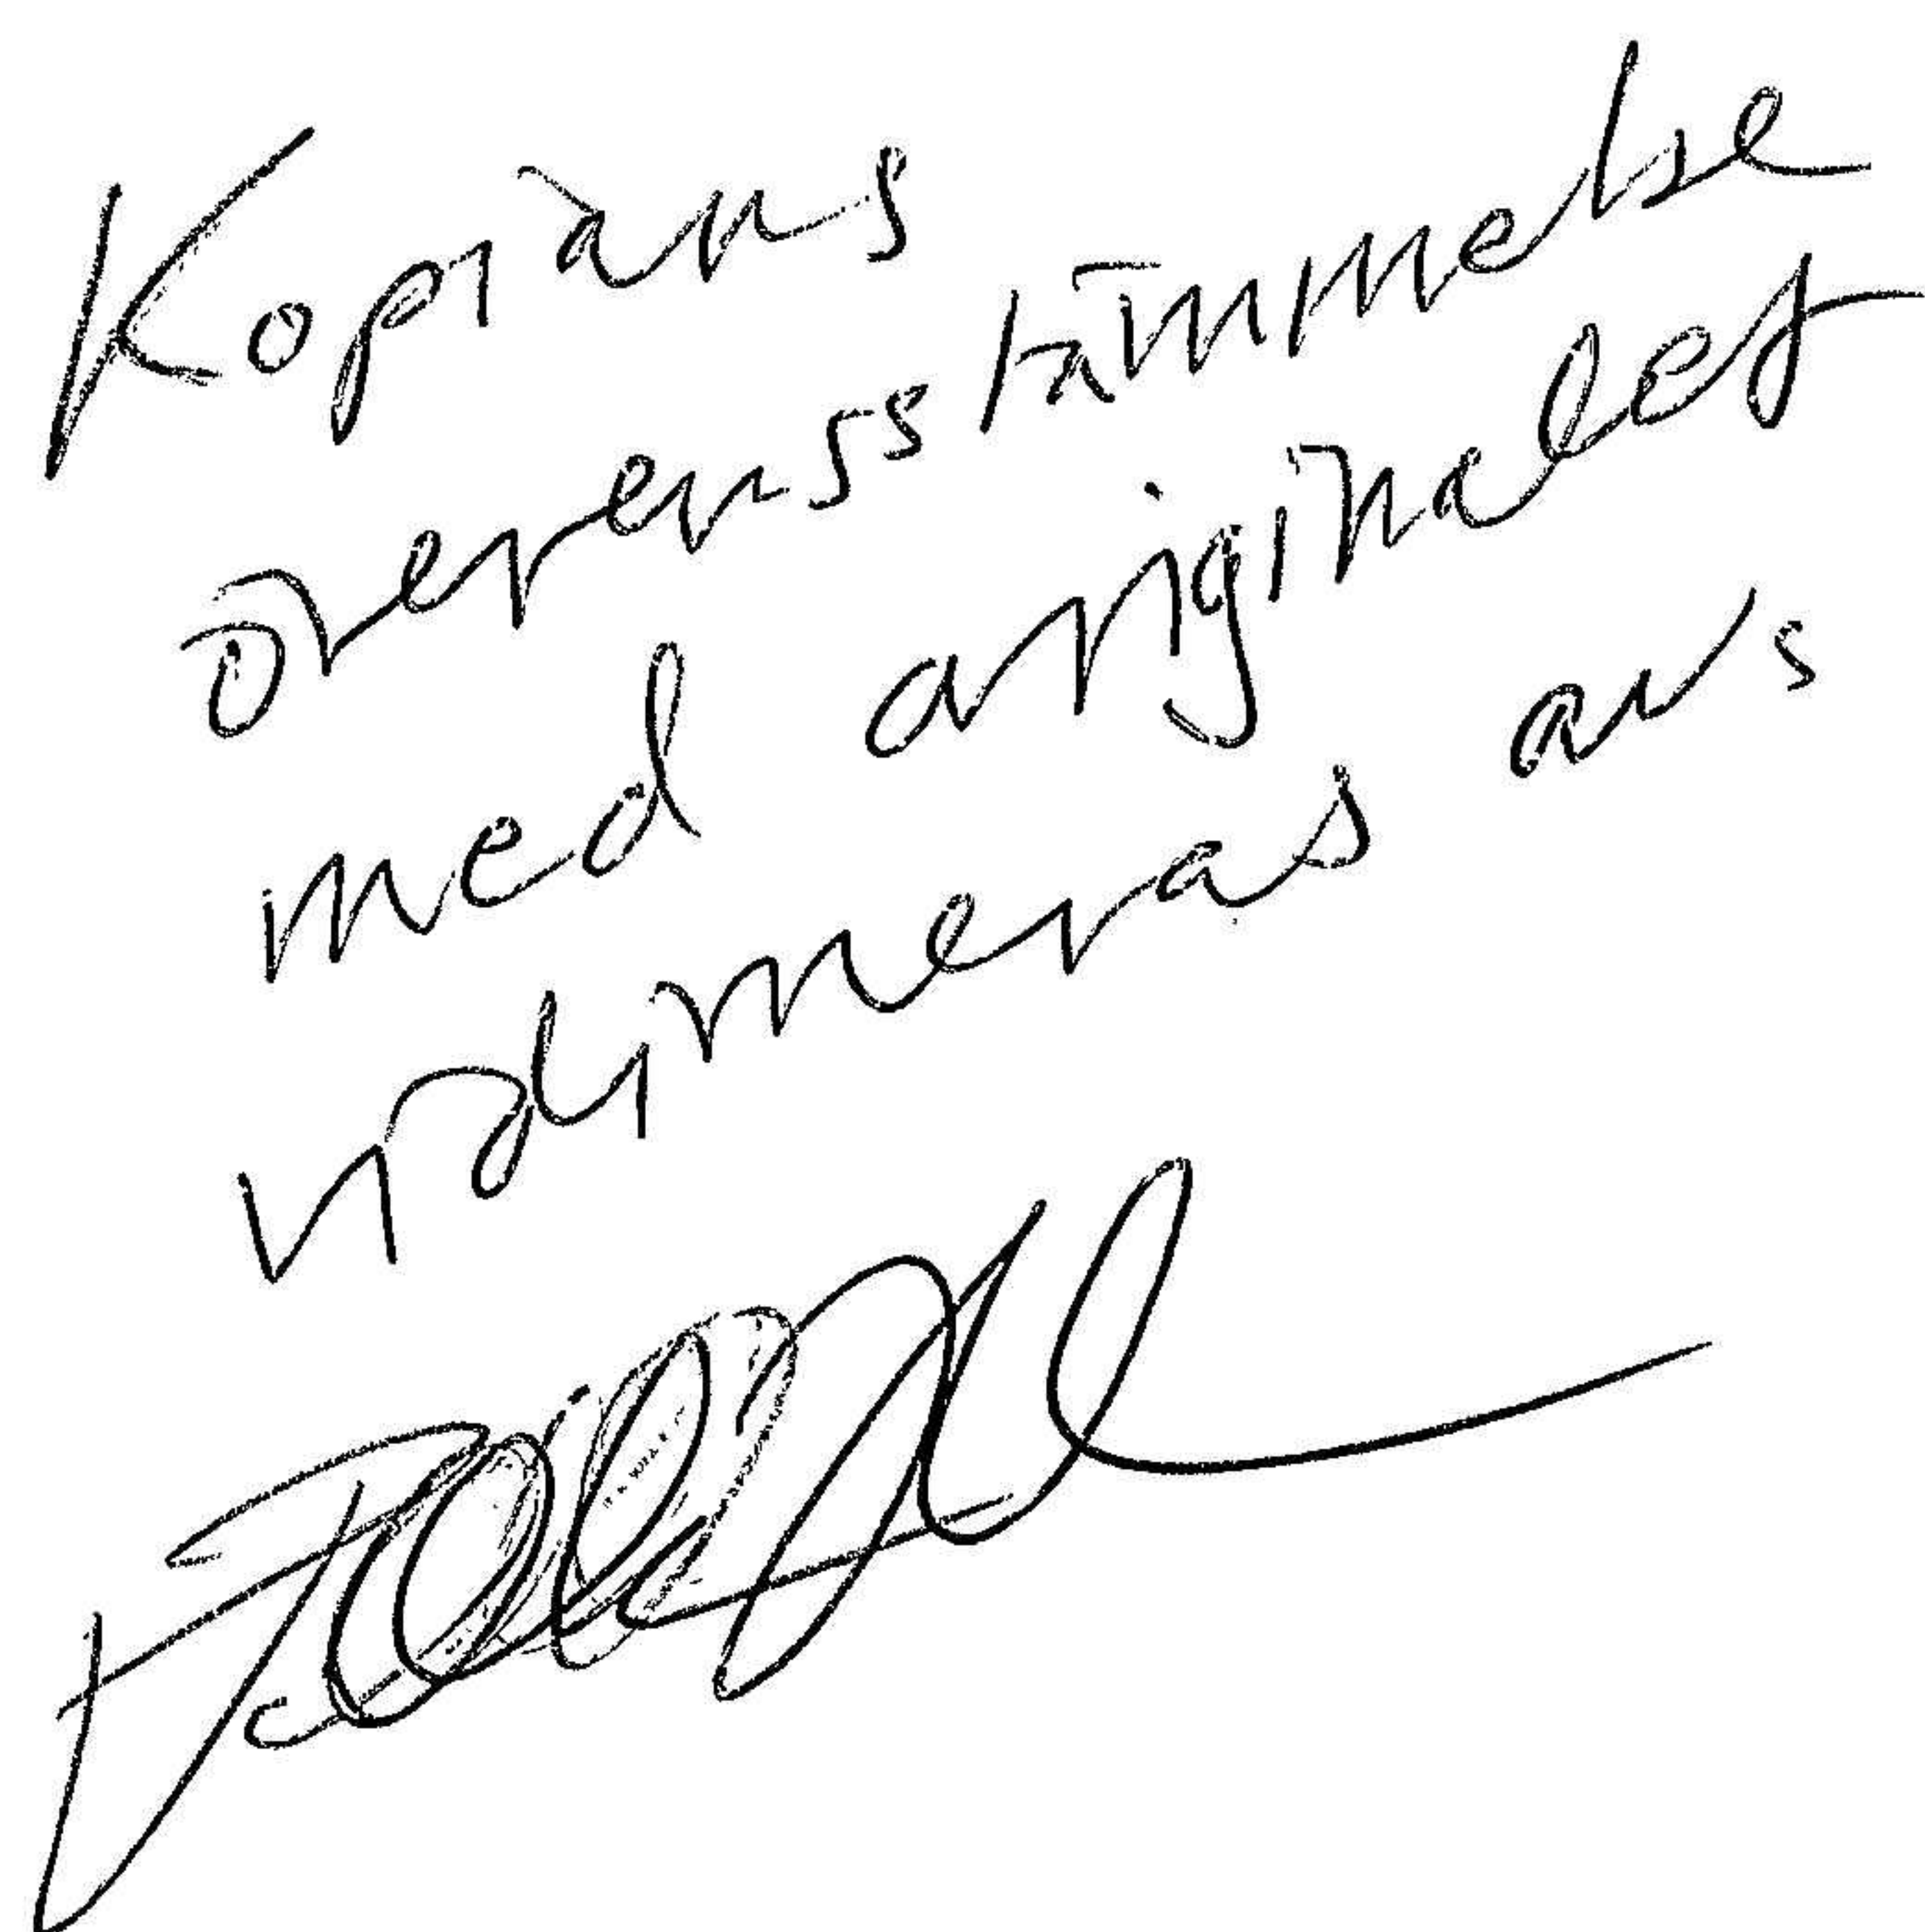 Kopians
överensstämmelse
med originalet
vidimeras avs